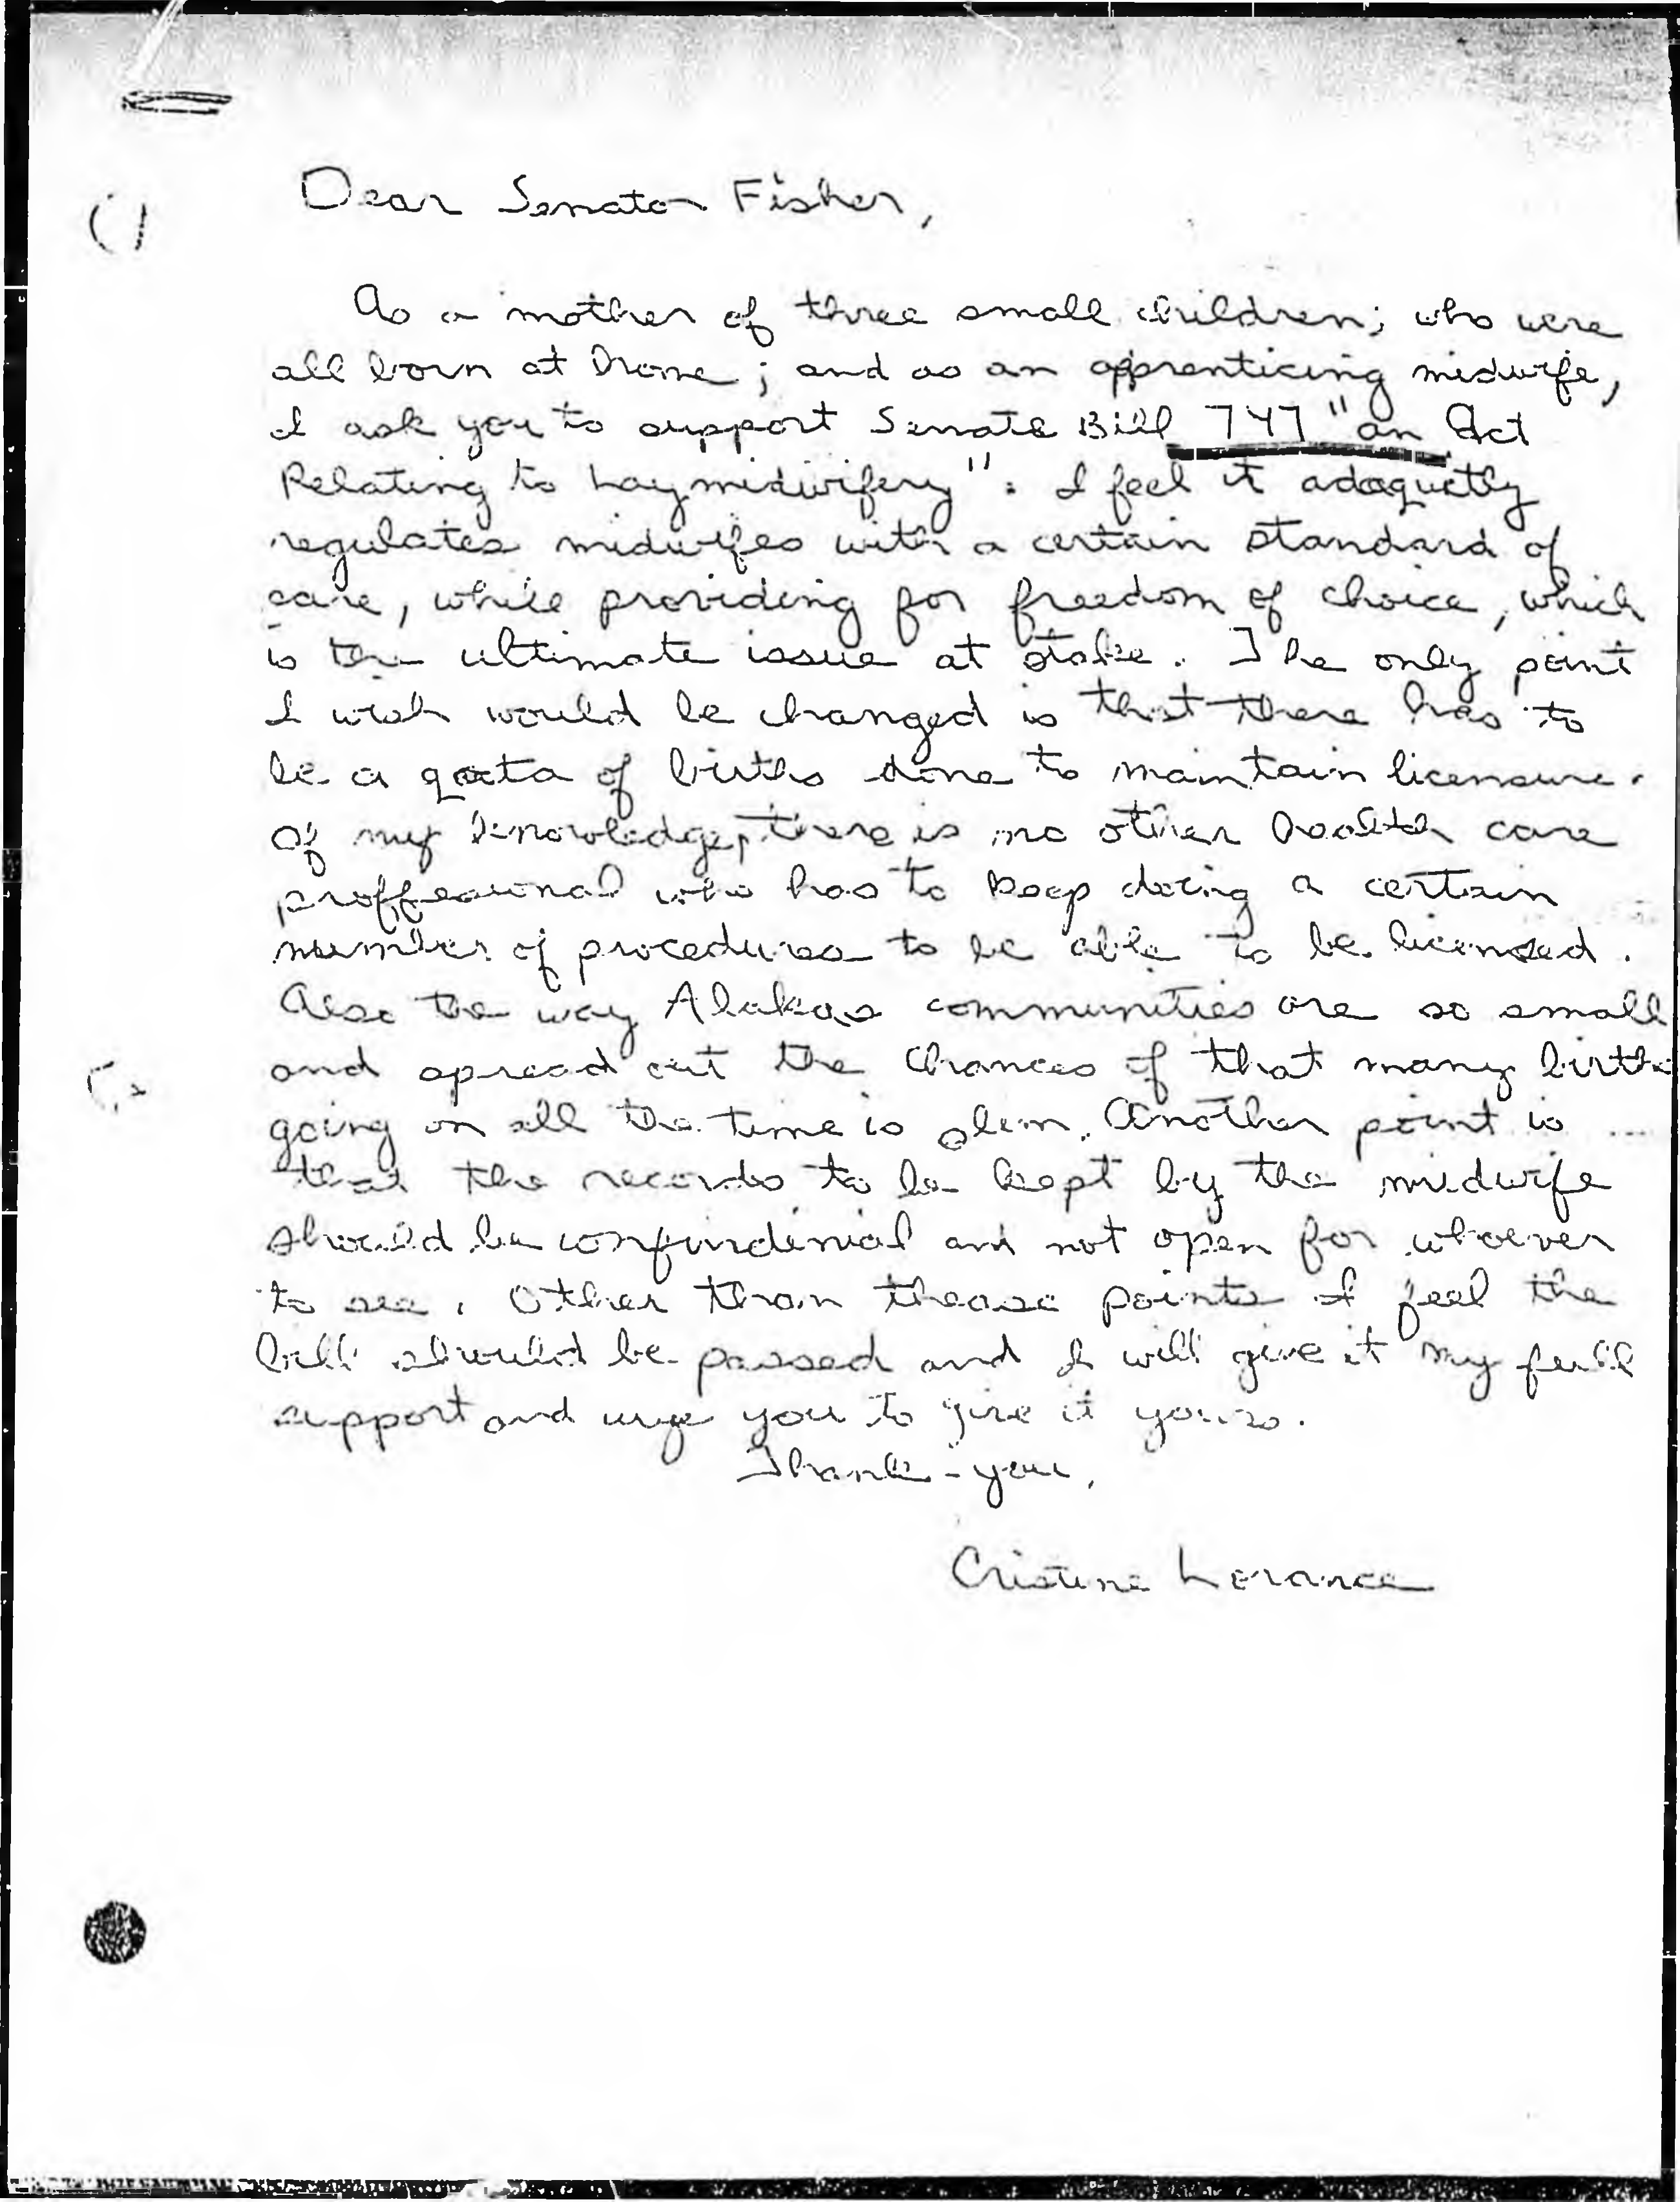 Dear Senator Fisher,
As a mother of three small children; who were
all born at home; and as an apprenticing midwife,
I ask you to support Senate Bill 747 "an Act
Relating to Laymidwifery". I feel it adaquetly
regulates midwifes with a certain standard of
care, while providing for freedom of choice, which
is the ultimate issue at stake. The only point
I wish would be changed is that there has to
be a qouta of births done to maintain licensure.
Of my knowledge, there is no other health care
proffessional who has to keep doing a certain
number of procedures to be able to be licensed.
Also the way Alakas communities are so small
and spread out the chances of that many births
going on all the time is slim. Another point is
that the records to be kept by the midwife
should be confindenial and not open for whoever
to see. Other than thease points I feel the
bill should be passed and I will give it my full
support and urge you to give it yours.
Thank-you,
Cristine Lerance